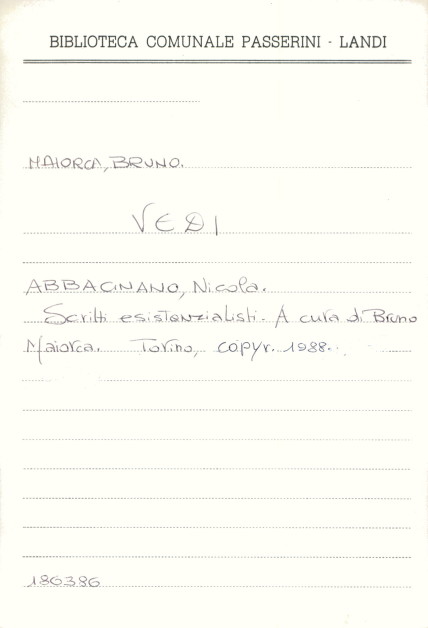 BIBLIOTECA COMUNALE PASSERINI - LANDI
MAIORCA, BRUNO.
VEDI
ABBAGNANO, Nicola.
Scritti esistenzialisti. A cura di Bruno
Maiorca. Torino, copyr. 1988.
186386